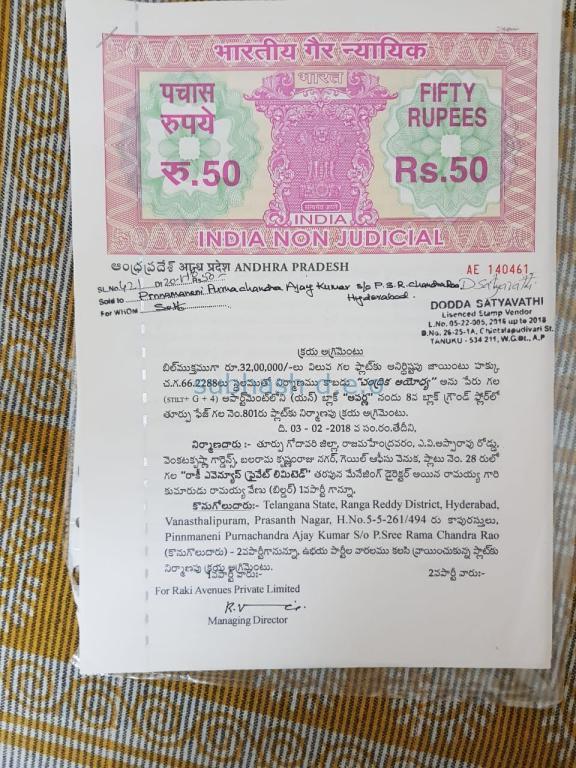 भारतीय गैर न्यायिक
भारत
पचास
रुपये
रु.50
FIFTY
RUPEES
Rs.50
सत्यमेव जयते
INDIA
INDIA NON JUDICIAL
ఆంధ్రప్రదేశ్ आन्ध्र प्रदेश ANDHRA PRADESH
AE 140461
SL.No. 421 Dt 20-1 Rs.50
Sold to Pinnamaneni Purnachandra Ajay Kumar s/o P.S.R. Chandra Rao
For WHOM Self Hyderabad
D. Satyavathi
DODDA SATYAVATHI
Lisenced Stamp Vendor
L.No. 05-22-005, 2016 upto 2018
D.No. 26-25-1A, Chintalapudivari St.
TANUKU - 534 211, W.G.Dt., A.P
క్రయ అగ్రిమెంటు
బిల్‌ముక్తముగా రూ.32,00,000/-లు విలువ గల ప్లాట్‌కు అనిర్దిష్టపు జాయింటు హక్కు
చ.గ.66.2288లు స్థలముతో నిర్మాణము కాబడు "పంద్రిక అయోధ్య" అను పేరు గల
(STILT+ G + 4) అపార్ట్‌మెంట్‌లోని (యన్) బ్లాక్ "అపర్ణ" నందు 8వ బ్లాక్ గ్రౌండ్ ఫ్లోర్‌లో
తూర్పు ఫేజ్ గల నెం.801రు ప్లాట్‌కు నిర్మాణపు క్రయ అగ్రిమెంటు.
subhash d.e.o
ది. 03 - 02 - 2018 వ సం.రం.తేదీని,
నిర్మాణదారు :- తూర్పు గోదావరి జిల్లా, రాజమహేంద్రవరం, ఎ.వి.అప్పారావు రోడ్డు,
వెంకటకృష్ణా గార్డెన్స్, బలరామ కృష్ణంరాజు నగర్, గెయిల్ ఆఫీసు వెనుక, ప్లాటు నెం. 28 రులో
గల "రాకీ ఎవెన్యూస్ ప్రైవేట్ లిమిటెడ్" తరపున మేనేజింగ్ డైరెక్టర్ అయిన రామయ్య గారి
కుమారుడు రామయ్య వేణు (బిల్డర్) 1వపార్టీ గానూ,
కొనుగోలుదారు:- Telangana State, Ranga Reddy District, Hyderabad,
Vanasthalipuram, Prasanth Nagar, H.No.5-5-261/494 రు కాపురస్తులు,
Pinnmaneni Purnachandra Ajay Kumar S/o P.Sree Rama Chandra Rao
(కొనుగోలుదారు) - 2వపార్టీగానున్నూ, ఉభయ పార్టీల వారలము కలసి వ్రాయించుకున్న ప్లాట్‌కు
నిర్మాణపు క్రయ అగ్రిమెంటు.
1వపార్టీ వారు:- 2వపార్టీ వారు:-
For Raki Avenues Private Limited
Managing Director